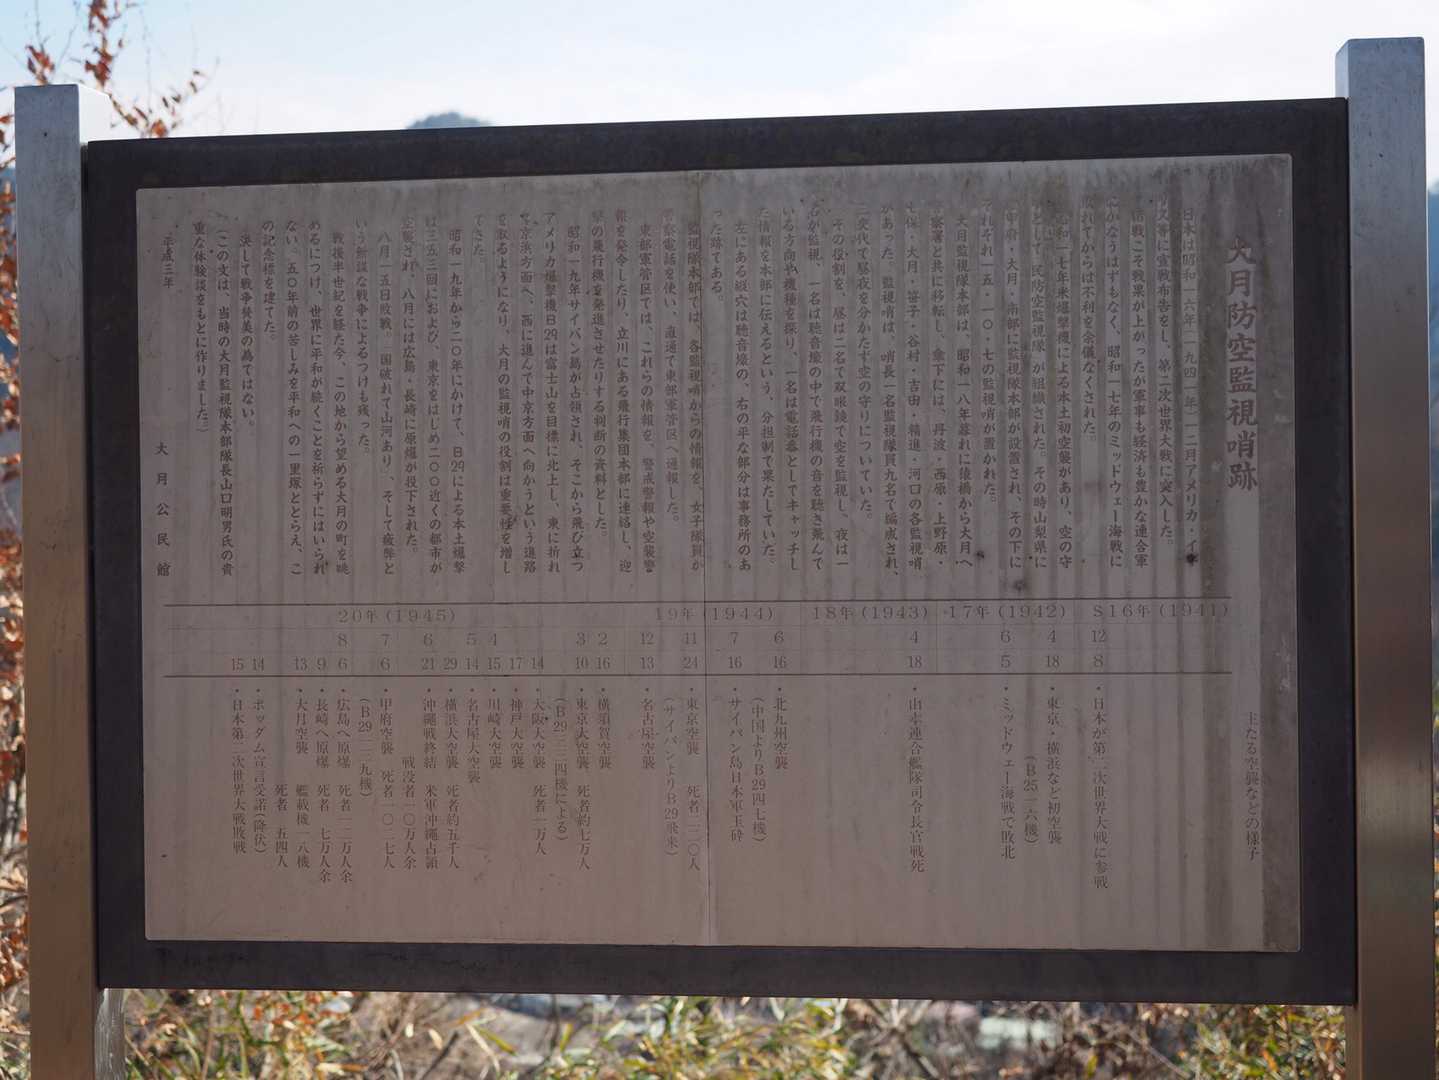 大月防空監視哨跡
日本は昭和一六年(一九四一年)一二月アメリカ・イ
リス等に宣戦布告をし、第二次世界大戦に突入した。
緒戦こそ戦果が上がったが軍事も経済も豊かな連合軍
にかなうはずもなく、昭和一七年のミッドウェー海戦に
敗れてからは不利を余儀なくされた。
昭和一七年米爆撃機による本土初空襲があり、空の守
りとして「民防空監視隊」が組織された。その時山梨県に
甲府・大月・南部に監視隊本部が設置され、その下に
それぞれ一五・一〇・七の監視哨が置かれた。
大月監視隊本部は、昭和一八年暮れに猿橋から大月へ
警察署と共に移転し、傘下には、丹波・西原・上野原・
七保・大月・笹子・谷村・吉田・精進・河口の各監視哨
があった。監視哨は、哨長一名監視隊員九名で編成され、
三交代で昼夜を分かたず空の守りについていた。
その役割を、昼は二名で双眼鏡で空を監視し、夜は一
名が監視、一名は聴音壕の中で飛行機の音を聴き飛んで
いる方向や機種を探り、一名は電話番としてキャッチし
た情報を本部に伝えるという、分担制で果たしていた。
左にある竪穴は聴音壕の、右の平な部分は事務所のあ
った跡である。
監視隊本部では、各監視哨からの情報を、女子隊員が
警察電話を使い、直通で東部軍管区へ通報した。
東部軍管区では、これらの情報を、警戒警報や空襲警
報を発令したり、立川にある飛行集団本部に連絡し、迎
撃の飛行機を発進させたりする判断の資料とした。
昭和一九年サイパン島が占領され、そこから飛び立つ
アメリカ爆撃機B29は富士山を目標に北上し、東に折れ
て京浜方面へ、西に進んで中京方面へ向かうという進路
を取るようになり、大月の監視哨の役割は重要性を増し
てきた。
昭和一九年から二〇年にかけて、B29による本土爆撃
は三五三回におよび、東京をはじめ二〇〇近くの都市が
空襲され、八月には広島・長崎に原爆が投下された。
八月一五日敗戦、「国破れて山河あり」、そして疲弊と
いう無謀な戦争によるつけも残った。
戦後半世紀を経た今、この地から望める大月の町を眺
めるにつけ、世界に平和が続くことを祈らずにはいられ
ない。五〇年前の苦しみを平和への一里塚ととらえ、こ
の記念標を建てた。
決して戦争賛美の為ではない。
(この文は、当時の大月監視隊本部隊長山口明男氏の貴
重な体験談をもとに作りました。)
平成三年
大月公民館
主たる空襲などの様子
S16年(1941) 12 8 ・日本が第二次世界大戦に参戦
17年(1942) 4 18 ・東京・横浜など初空襲
(B25一六機)
6 5 ・ミッドウェー海戦で敗北
18年(1943) 4 18 ・山本連合艦隊司令長官戦死
19年(1944) 6 16 ・北九州空襲
(中国よりB29四七機)
7 16 ・サイパン島日本軍玉砕
11 24 ・東京空襲 死者二二〇人
(サイパンよりB29飛来)
12 13 ・名古屋空襲
20年(1945) 2 16 ・横須賀空襲
3 10 ・東京大空襲 死者約七万人
(B29三三四機による)
14 ・大阪大空襲 死者一万人
17 ・神戸大空襲
4 15 ・川崎大空襲
5 14 ・名古屋大空襲
29 ・横浜大空襲 死者約五千人
6 21 ・沖縄戦終結 米軍沖縄占領
戦没者一〇万人余
7 6 ・甲府空襲 死者一〇二七人
(B29一三九機)
8 6 ・広島へ原爆 死者一二万人余
9 ・長崎へ原爆 死者 七万人余
13 ・大月空襲 艦載機一八機
死者 五四人
14 ・ポツダム宣言受諾(降伏)
15 ・日本第二次世界大戦敗戦